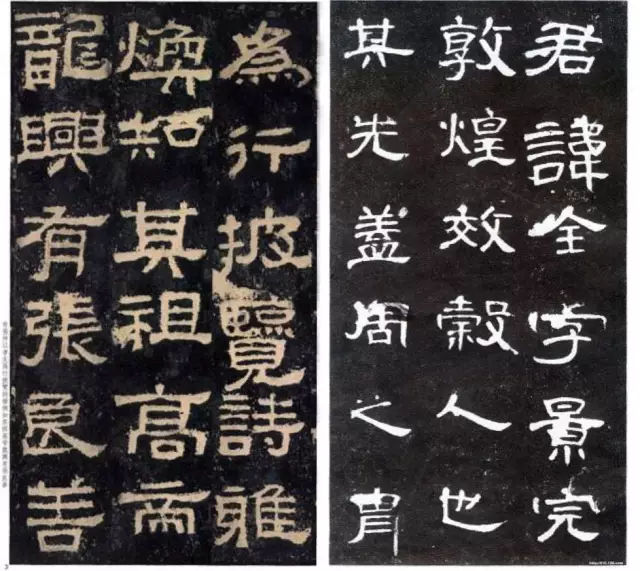 為行披覽詩雅
煥知其祖高帝
龍興有張良善
3
君諱全字景完
敦煌效穀人也
其先蓋周之胄